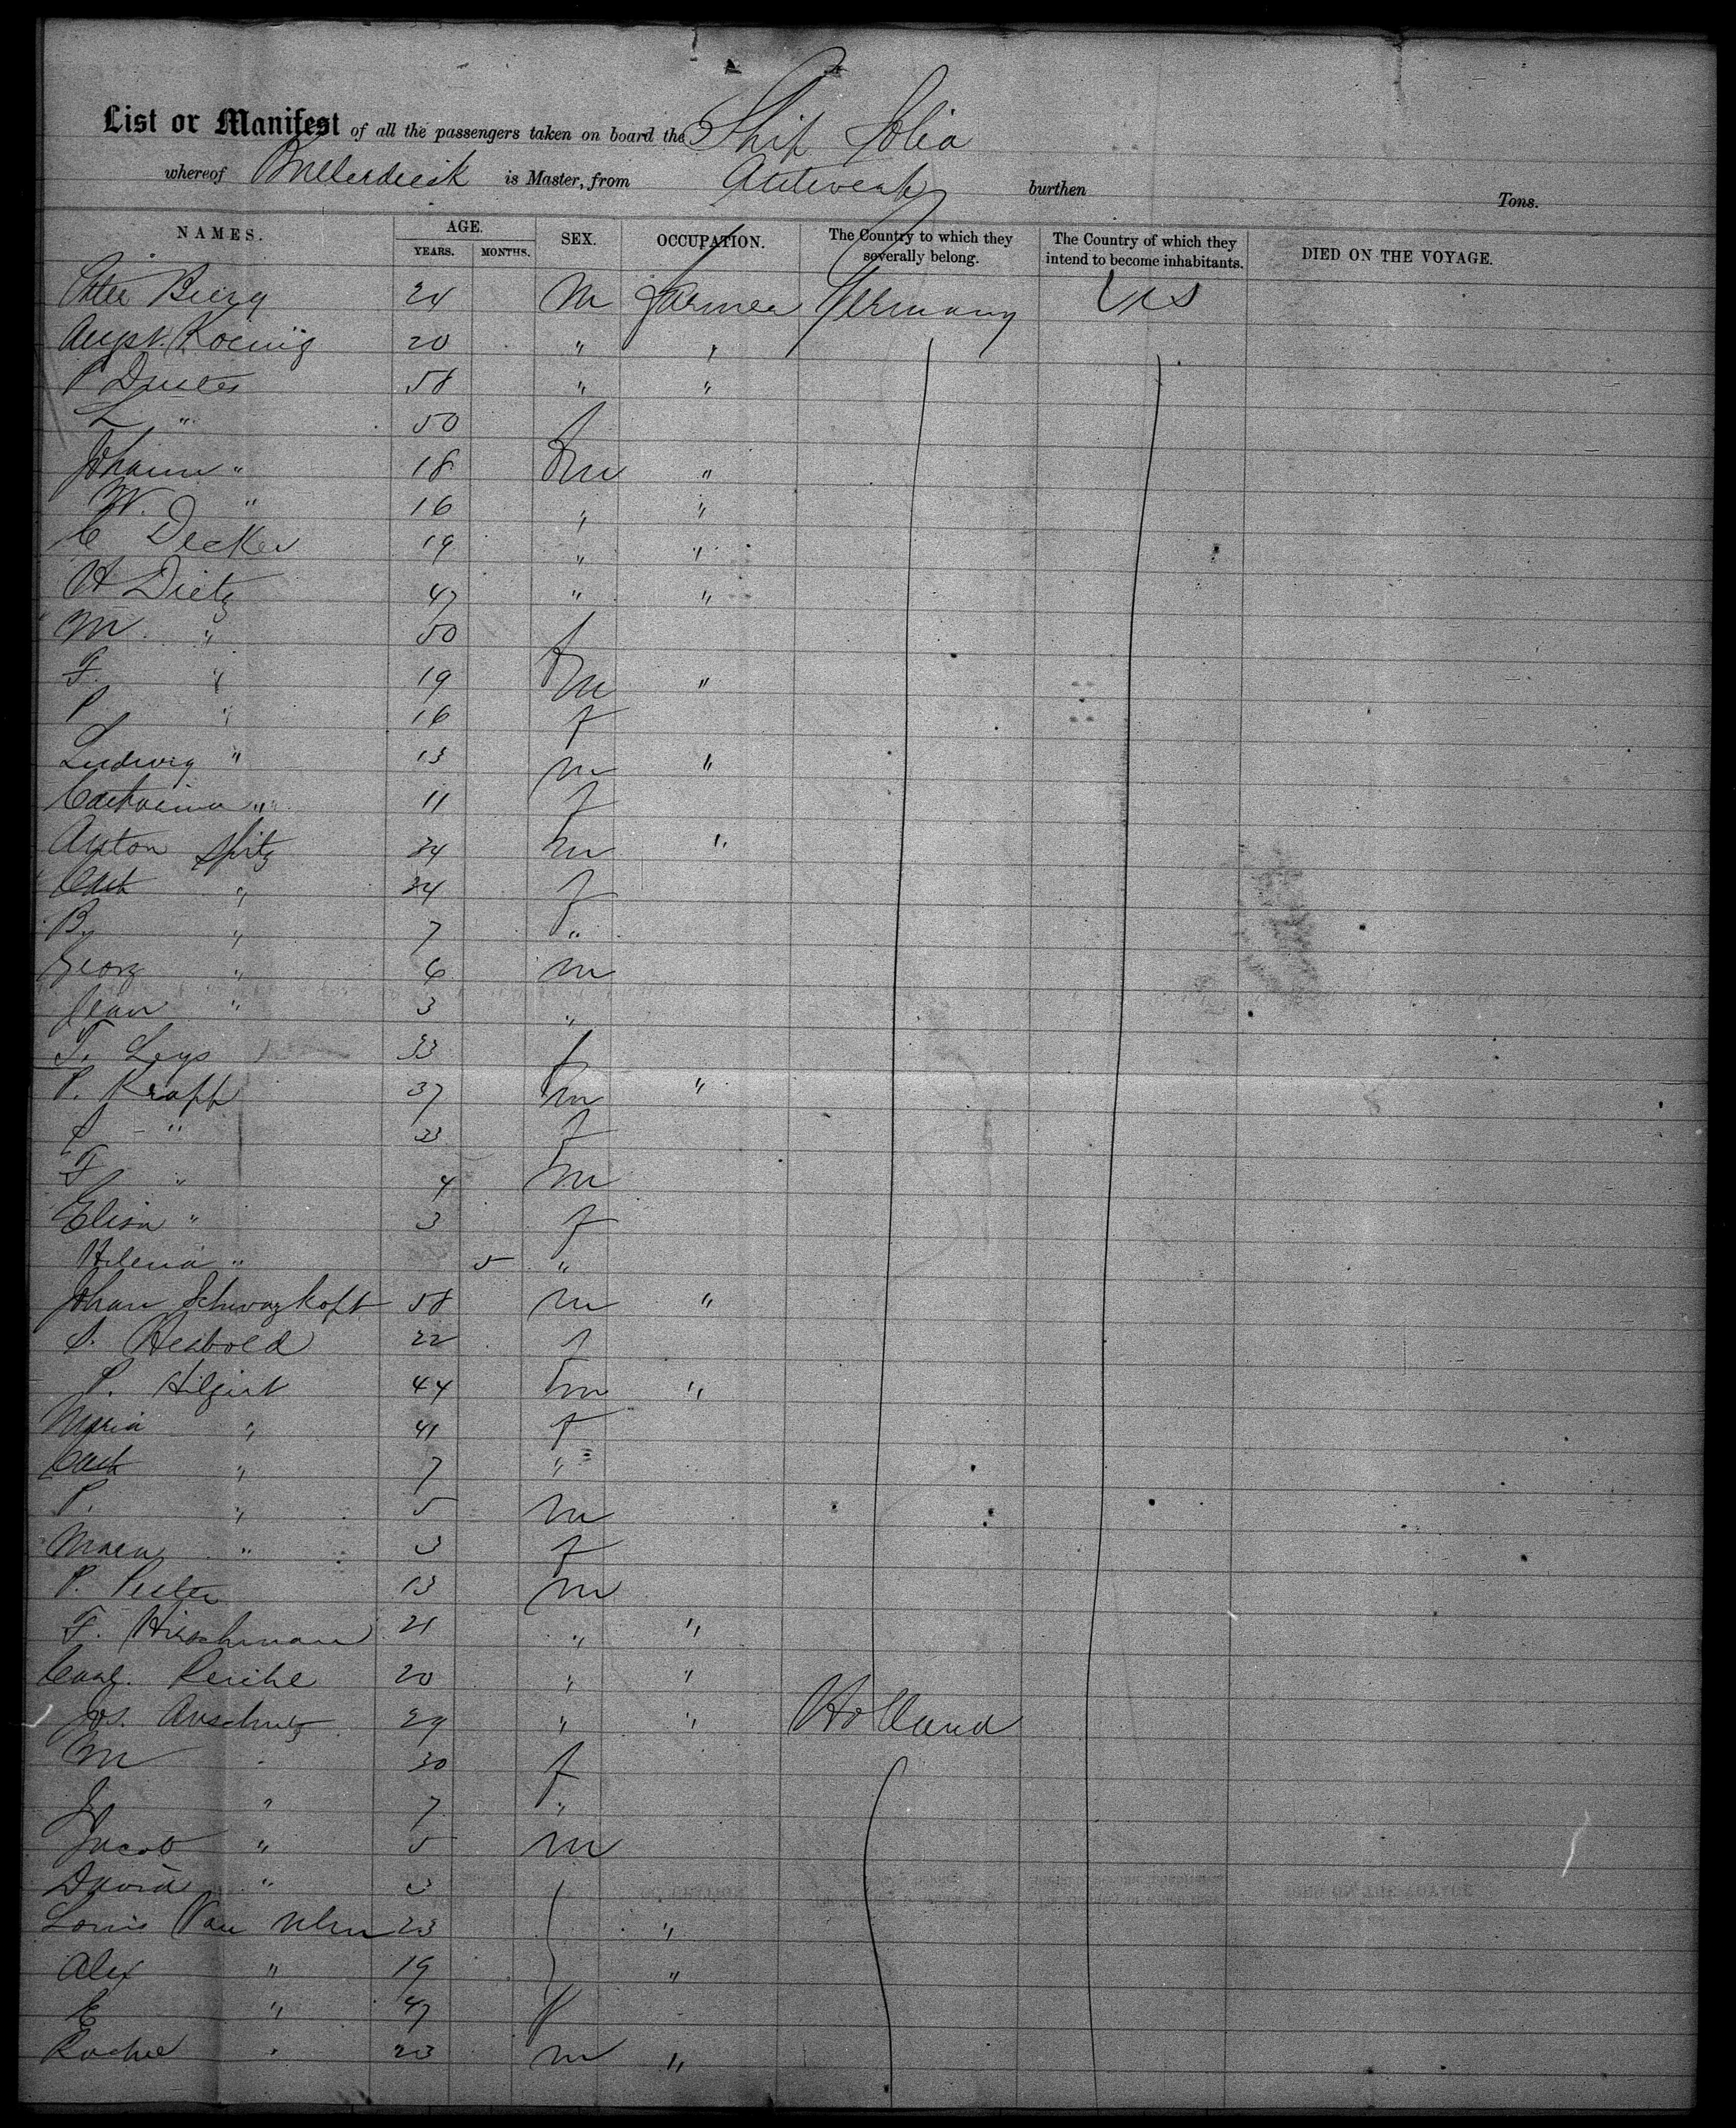 List or Manifest of all the passengers taken on board the Ship Iolia
whereof is Master, from Antwerp burthen Tons.
NAMES. AGE. SEX. OCCUPATION. The Country to which they severally belong. The Country of which they intend to become inhabitants. DIED ON THE VOYAGE.
YEARS. MONTHS.
24 M Farmer Germany US
August. Koenig 20 " "
P 58 " "
L " 50 f
Johann " 18 m "
W. " 16 " "
C Decker 19 " "
H Dietz 47 " "
M. " 50 f
F. " 19 m "
P " 16 f
Ludwig " 13 m "
Catharina " 11 f
Anton Spitz 34 m "
Cath " 34 f
B. " 7 "
Georg " 6 m
Jean " 3 "
T. Leys 33 f
P. Krapp 37 m "
" 33 f
F " 4 m
Elisa " 3 f
Helena " 5 "
Johan Schwarzkopf 58 m "
S. Herbold 22 f
P. Hilgert 44 m "
Maria " 41 f
Cath " 7 "
P. " 5 m
" 3 f
P. Peeter 13 m
F. Hirschman 21 " "
20 " "
Jos. Anschutz 29 " " Holland
M " 30 f
J " 7 "
Jacob " 5 m
David " 3
Louis Van 23 "
Alex " 19 "
E " 47 f
23 m "